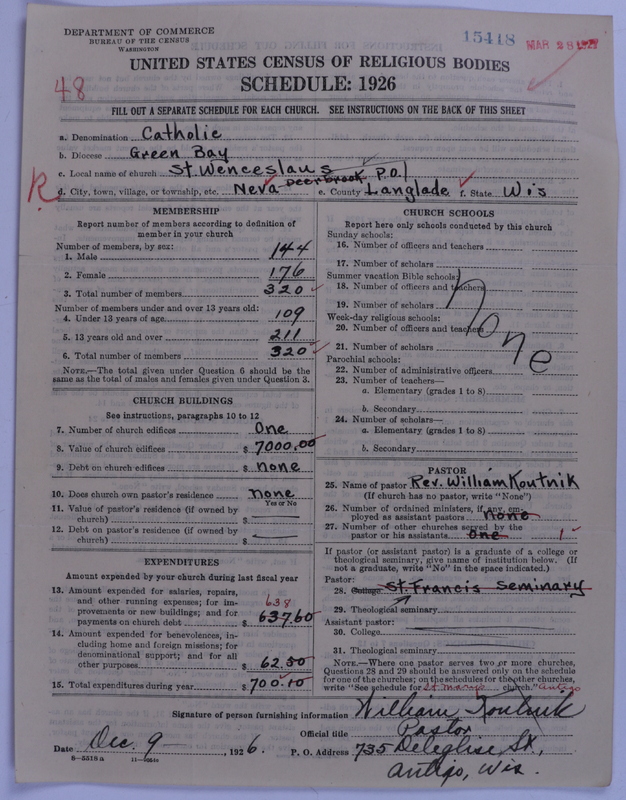 DEPARTMENT OF COMMERCE
BUREAU OF THE CENSUS
WASHINGTON
15418
MAR 28 1927
UNITED STATES CENSUS OF RELIGIOUS BODIES
SCHEDULE: 1926
48
FILL OUT A SEPARATE SCHEDULE FOR EACH CHURCH. SEE INSTRUCTIONS ON THE BACK OF THIS SHEET
a. Denomination Catholic
b. Diocese Green Bay
c. Local name of church St. Wenceslaus
R
d. City, town, village, or township, etc. Neva Deerbrook P.O. e. County Langlade f. State Wis
MEMBERSHIP
Report number of members according to definition of
member in your church
Number of members, by sex:
1. Male 144
2. Female 176
3. Total number of members 320
Number of members under and over 13 years old:
4. Under 13 years of age 109
5. 13 years old and over 211
6. Total number of members 320
NOTE.—The total given under Question 6 should be
same as the total of males and females given under Question 3.
CHURCH BUILDINGS
See instructions, paragraphs 10 to 12
7. Number of church edifices One
8. Value of church edifices $ 7000.00
9. Debt on church edifices $ none
10. Does church own pastor's residence none
Yes or No
11. Value of pastor's residence (if owned by
church) $
12. Debt on pastor's residence (if owned by
church) $
EXPENDITURES
Amount expended by your church during last fiscal year
13. Amount expended for salaries, repairs,
and other running expenses; for im-
provements or new buildings; and for
payments on church debt $ 637.60
638
14. Amount expended for benevolences, in-
cluding home and foreign missions; for
denominational support; and for all
other purposes $ 62.50
15. Total expenditures during year $ 700.10
CHURCH SCHOOLS
Report here only schools conducted by this church
Sunday schools:
16. Number of officers and teachers
17. Number of scholars
Summer vacation Bible schools:
18. Number of officers and teachers
19. Number of scholars
Week-day religious schools:
20. Number of officers and teachers
21. Number of scholars
None
Parochial schools:
22. Number of administrative officers
23. Number of teachers—
a. Elementary (grades 1 to 8)
b. Secondary
24. Number of scholars—
a. Elementary (grades 1 to 8)
b. Secondary
PASTOR
25. Name of pastor Rev. William Koutnik
(If church has no pastor, write "None")
26. Number of ordained ministers, if any, em-
ployed as assistant pastors none
27. Number of other churches served by the
pastor or his assistants One 1
If pastor (or assistant pastor) is a graduate of a college or
theological seminary, give name of institution below. (If
not a graduate, write "No" in the space indicated.)
Pastor:
28. College St. Francis Seminary
29. Theological seminary
Assistant pastor:
30. College
31. Theological seminary
NOTE.—Where one pastor serves two or more churches,
Questions 28 and 29 should be answered only on the schedule
for one of the churches; on the schedules for the other churches,
write "See schedule for St Marys church." Antigo
Signature of person furnishing information William Koutnik
Official title Pastor
Date Dec. 9, 1926. P. O. Address 735 Deleglise St,
Antigo, Wis.
8—5518 a